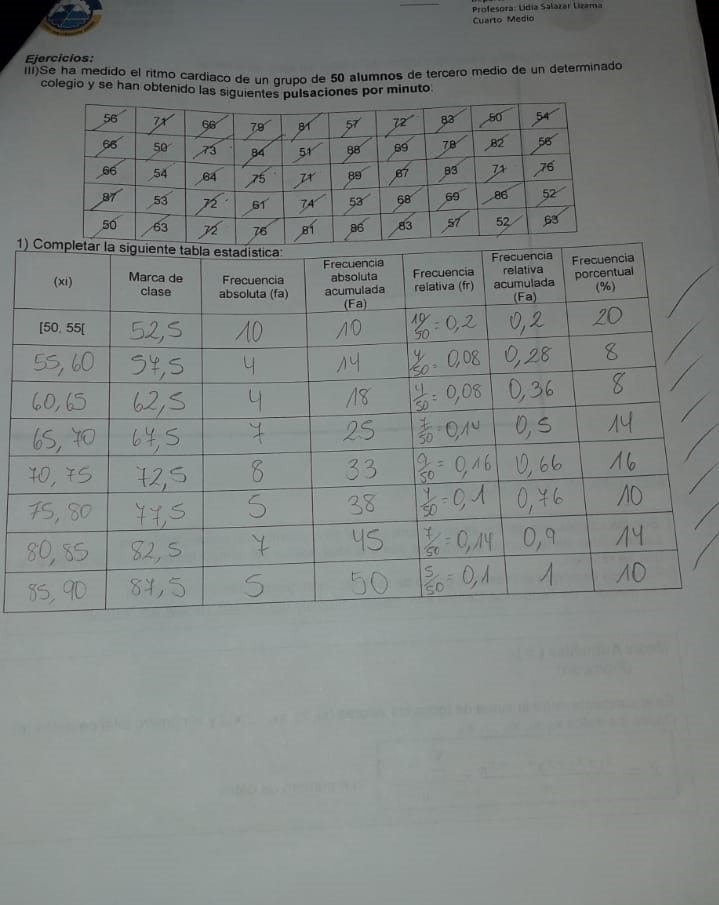 Profesora: Lidia Salazar Lizama
Cuarto Medio
Ejercicios:
III)Se ha medido el ritmo cardiaco de un grupo de 50 alumnos de tercero medio de un determinado
colegio y se han obtenido las siguientes pulsaciones por minuto:
56 71 66 79 81 57 72 83 50 54
66 50 73 84 51 88 69 78 82 56
66 54 64 75 71 89 67 83 71 76
87 53 72 61 74 53 68 69 86 52
50 63 72 76 81 86 83 57 52 63
1) Completar la siguiente tabla estadística:
(xi) Marca de clase Frecuencia absoluta (fa) Frecuencia absoluta acumulada (Fa) Frecuencia relativa (fr) Frecuencia relativa acumulada (Fa) Frecuencia porcentual (%)
[50, 55[ 52,5 10 10 10/50 = 0,2 0,2 20
55, 60 57,5 4 14 4/50 = 0,08 0,28 8
60, 65 62,5 4 18 4/50 = 0,08 0,36 8
65, 70 67,5 7 25 7/50 = 0,14 0,5 14
70, 75 72,5 8 33 /50 = 0,16 0,66 16
75, 80 77,5 5 38 /50 = 0,1 0,76 10
80, 85 82,5 7 45 7/50 = 0,14 0,9 14
85, 90 87,5 5 50 5/50 = 0,1 1 10